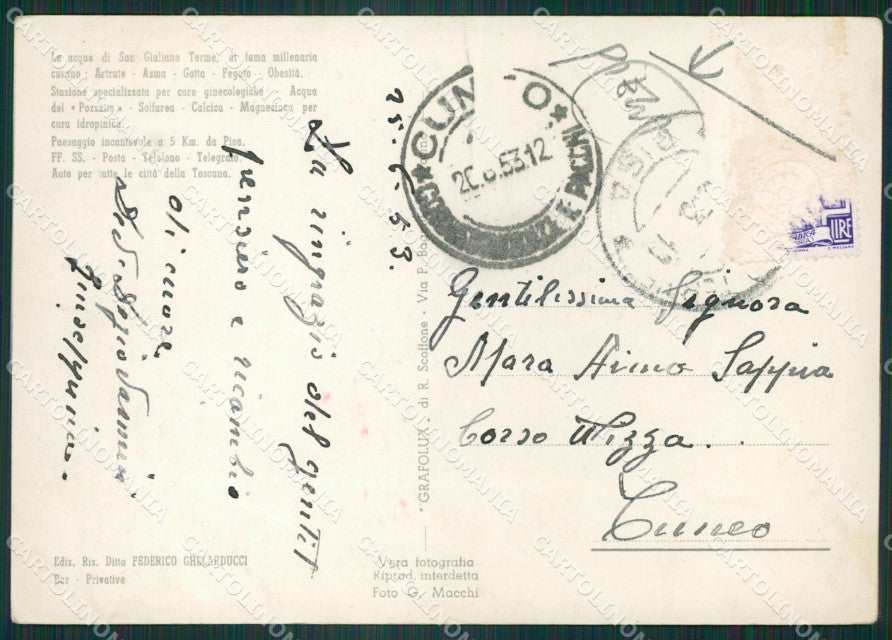 Le acque di San Giuliano Terme, di fama millenaria
curano: Artrute - Asma - Gotta - Fegato - Obesità.
Stazione specializzata per cure ginecologiche - Acqua
del «Pozzetto» - Solfarea - Calcica - Magnesiaca per
cura idropinica.
Paesaggio incantevole a 5 Km. da Pisa.
FF. SS. - Posta - Telefono - Telegrafo.
Auto per tutte le città della Toscana.
25.6.53.
La ringrazio del gentil
pensiero e ricambio
di cuore
Giuseppina.
Ediz. Ris. Ditta FEDERICO GHELARDUCCI
Bar - Privative
"GRAFOLUX" di R. Scoffone - Via P.
Vera fotografia
Riprod. interdetta
Foto G. Macchi
CUNEO
26.6.53.12
CORRISPONDENZE E PACCHI
PISA
LIRE
Gentilissima Signora
Mara Aimo Sappia
Corso Nizza.
Cuneo
CARTOLINOMANIA